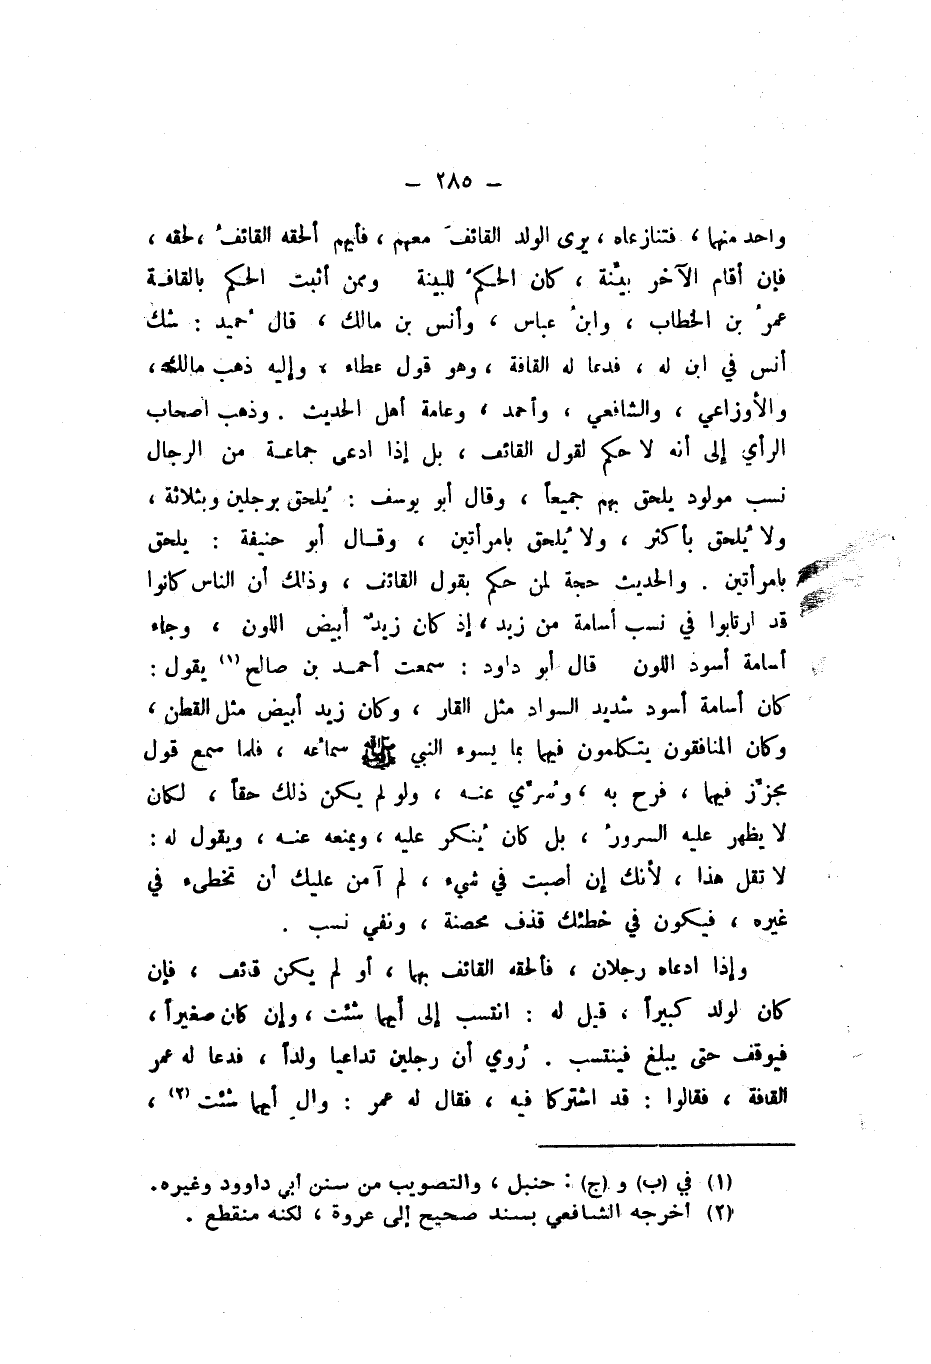 – ٢٨٥ –
واحد منهما ، فتنازعاه ، يرى الولد القائفَ معهم ، فأيهم ألحقه القائفُ ، لحقه ،
فإن أقام الآخر بيّنة ، كان الحكمُ للبينة وممن أثبت الحكم بالقافة
عمرُ بن الخطاب ، وابنُ عباس ، وأنس بن مالك ، قال حُميد : شك
أنس في ابن له ، فدعا له القافة ، وهو قول عطاء ، وإليه ذهب مالك ،
والأوزاعي ، والشافعي ، وأحمد ، وعامة أهل الحديث . وذهب أصحاب
الرأي إلى أنه لا حكم لقول القائف ، بل إذا ادعى جماعة من الرجال
نسب مولود يلحق بهم جميعاً ، وقال أبو يوسف : يُلحق برجلين وبثلاثة ،
ولا يُلحق بأكثر ، ولا يُلحق بامرأتين ، وقال أبو حنيفة : يلحق
بامرأتين . والحديث حجة لمن حكم بقول القائف ، وذلك أن الناس كانوا
قد ارتابوا في نسب أسامة من زيد ، إذ كان زيدٌ أبيض اللون ، وجاء
أسامة أسود اللون قال أبو داود : سمعت أحمد بن صالح (١) يقول :
كان أسامة أسود شديد السواد مثل القار ، وكان زيد أبيض مثل القطن ،
وكان المنافقون يتكلمون فيهما بما يسوء النبي ﷺ سماعُه ، فلما سمع قول
مجزّز فيهما ، فرح به ، وسُرّي عنه ، ولو لم يكن ذلك حقاً ، لكان
لا يظهر عليه السرورُ ، بل كان يُنكر عليه ، ويمنعه عنه ، ويقول له :
لا تقل هذا ، لأنك إن أصبت في شيء ، لم آمن عليك أن تخطىء في
غيره ، فيكون في خطئك قذف محصنة ، ونفي نسب .
وإذا ادعاه رجلان ، فألحقه القائف بهما ، أو لم يكن قائف ، فإن
كان لولد كبيراً ، قيل له : انتسب إلى أيهما شئت ، وإن كان صغيراً ،
فيوقف حتى يبلغ فينتسب . رُوي أن رجلين تداعيا ولداً ، فدعا له عمر
القافة ، فقالوا : قد اشتركا فيه ، فقال له عمر : وال أيهما شئت (٢) ،
(١) في (ب) و (ج) : حنبل ، والتصويب من سنن أبي داوود وغيره.
(٢) أخرجه الشافعي بسند صحيح إلى عروة ، لكنه منقطع .